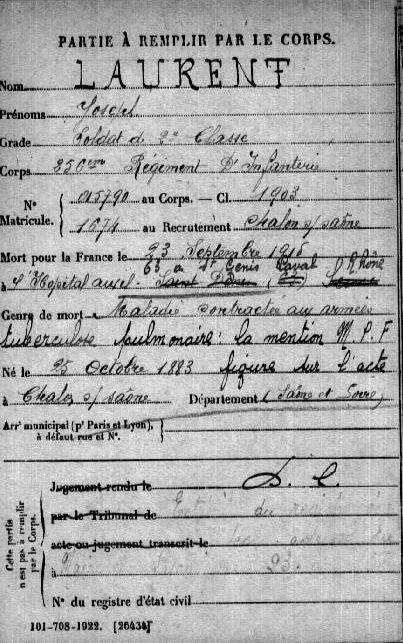 PARTIE À REMPLIR PAR LE CORPS.
Nom LAURENT
Prénoms Joseph
Grade Soldat de 2e Classe
Corps 356em Régiment D'Infanterie
N° Matricule. 015790 au Corps. — Cl. 1903
1674 au Recrutement Chalon s/ saône
Mort pour la France le 23 Septembre 1915
65 à St Genis Laval
à l'Hopital auxil. (Rhône)
Genre de mort Maladie contractée aux armées
tuberculose pulmonaire: la mention M.P.F
Né le 25 Octobre 1883 figure sur l'acte
à Chalon s/ saône Département (Saône et Loire)
Arrt municipal (pr Paris et Lyon),
à défaut rue et N°.
Cette partie n'est pas à remplir par le Corps.
Jugement rendu le D. C.
par le Tribunal de
acte ou jugement transcrit le
à
N° du registre d'état civil
101-708-1922. [26434]